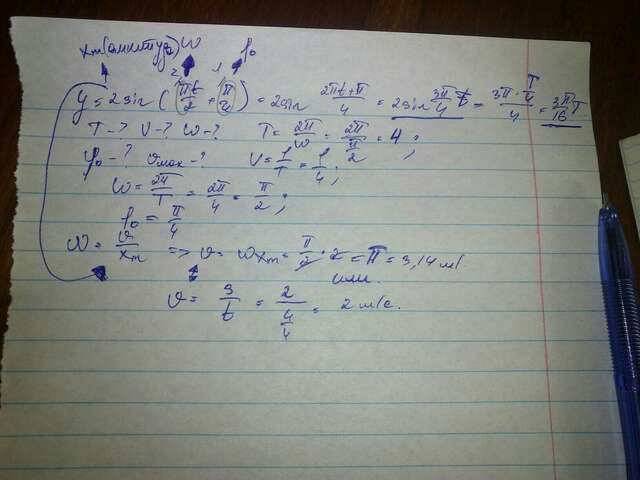 xm(амплитуда) ω φ₀
2 1
y = 2 sin (πt/2 + π/4) = 2 sin (2πt+π)/4 = 2 sin 3π/4 t = (3π · T/4)/4 = 3π/16 T
T - ? ν - ? ω - ? T = 2π/ω = 2π/(π/2) = 4 ;
φ₀ - ? υмах - ? ν = 1/T = 1/4 ;
ω = 2π/T = 2π/4 = π/2 ;
φ₀ = π/4
ω = υ/xm => υ = ωxm = π/2 · 2 = π = 3,14 м/
или
υ = S/t = 2/(4/4) = 2 м/с.